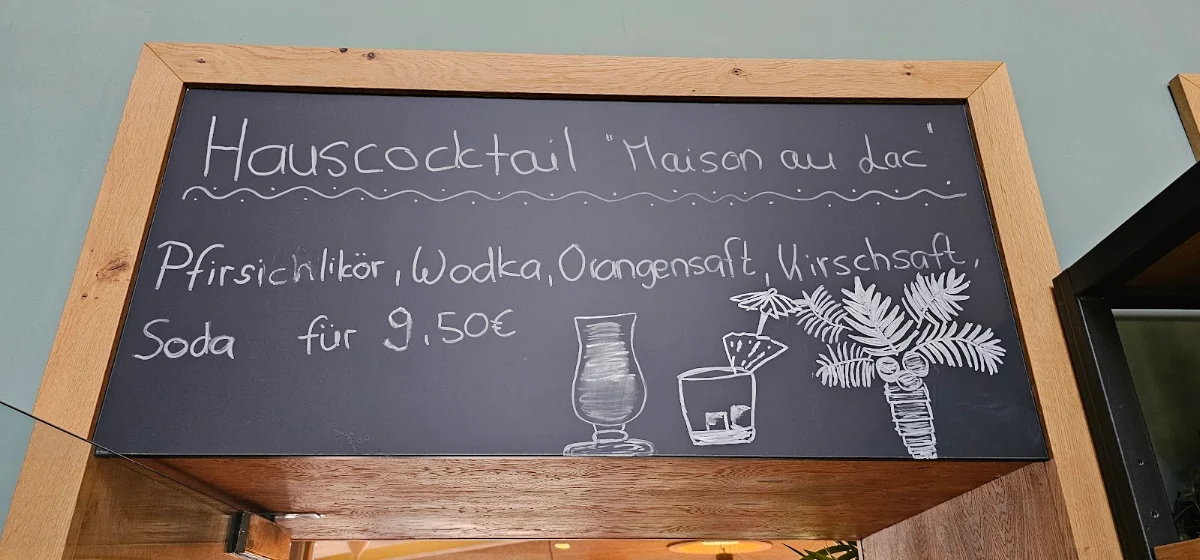 Hauscocktail "Maison au Lac"
Pfirsichlikör, Wodka, Orangensaft, Kirschsaft,
Soda für 9,50€